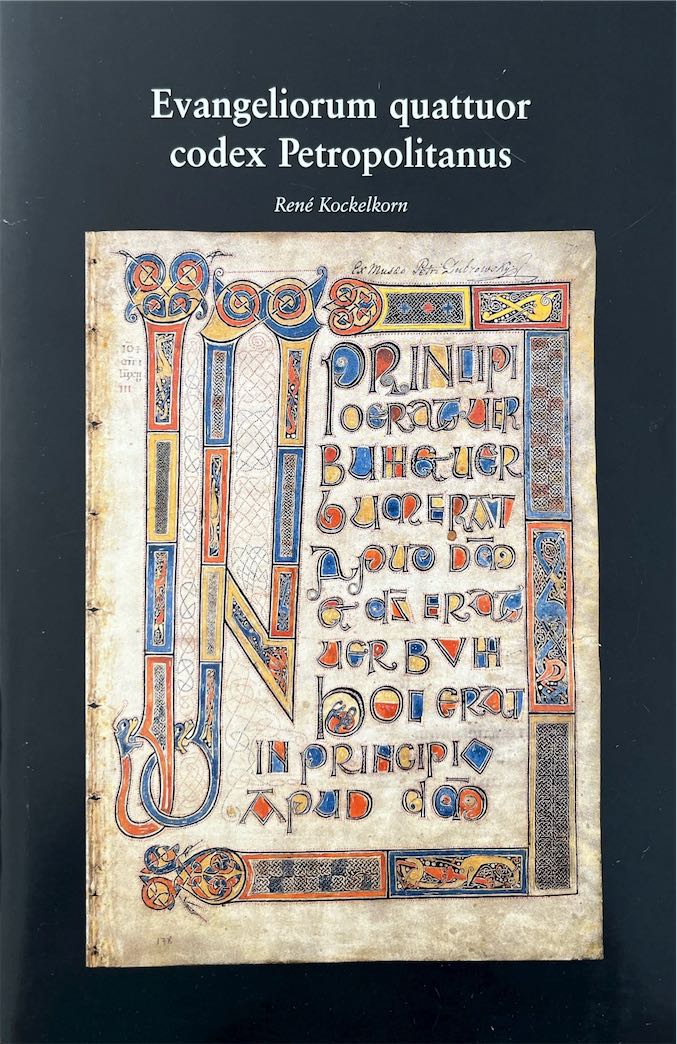 Evangeliorum quattuor
codex Petropolitanus
René Kockelkorn
Ex Museo Petri Dubrowsky
IN PRINCIPI
O ERAT UER
BUM ET UER
BUM ERAT
APUD DM̄
ET DS̄ ERAT
UERBUM
hOC ERAT
IN PRINCIPIO
APUD dM̄
178